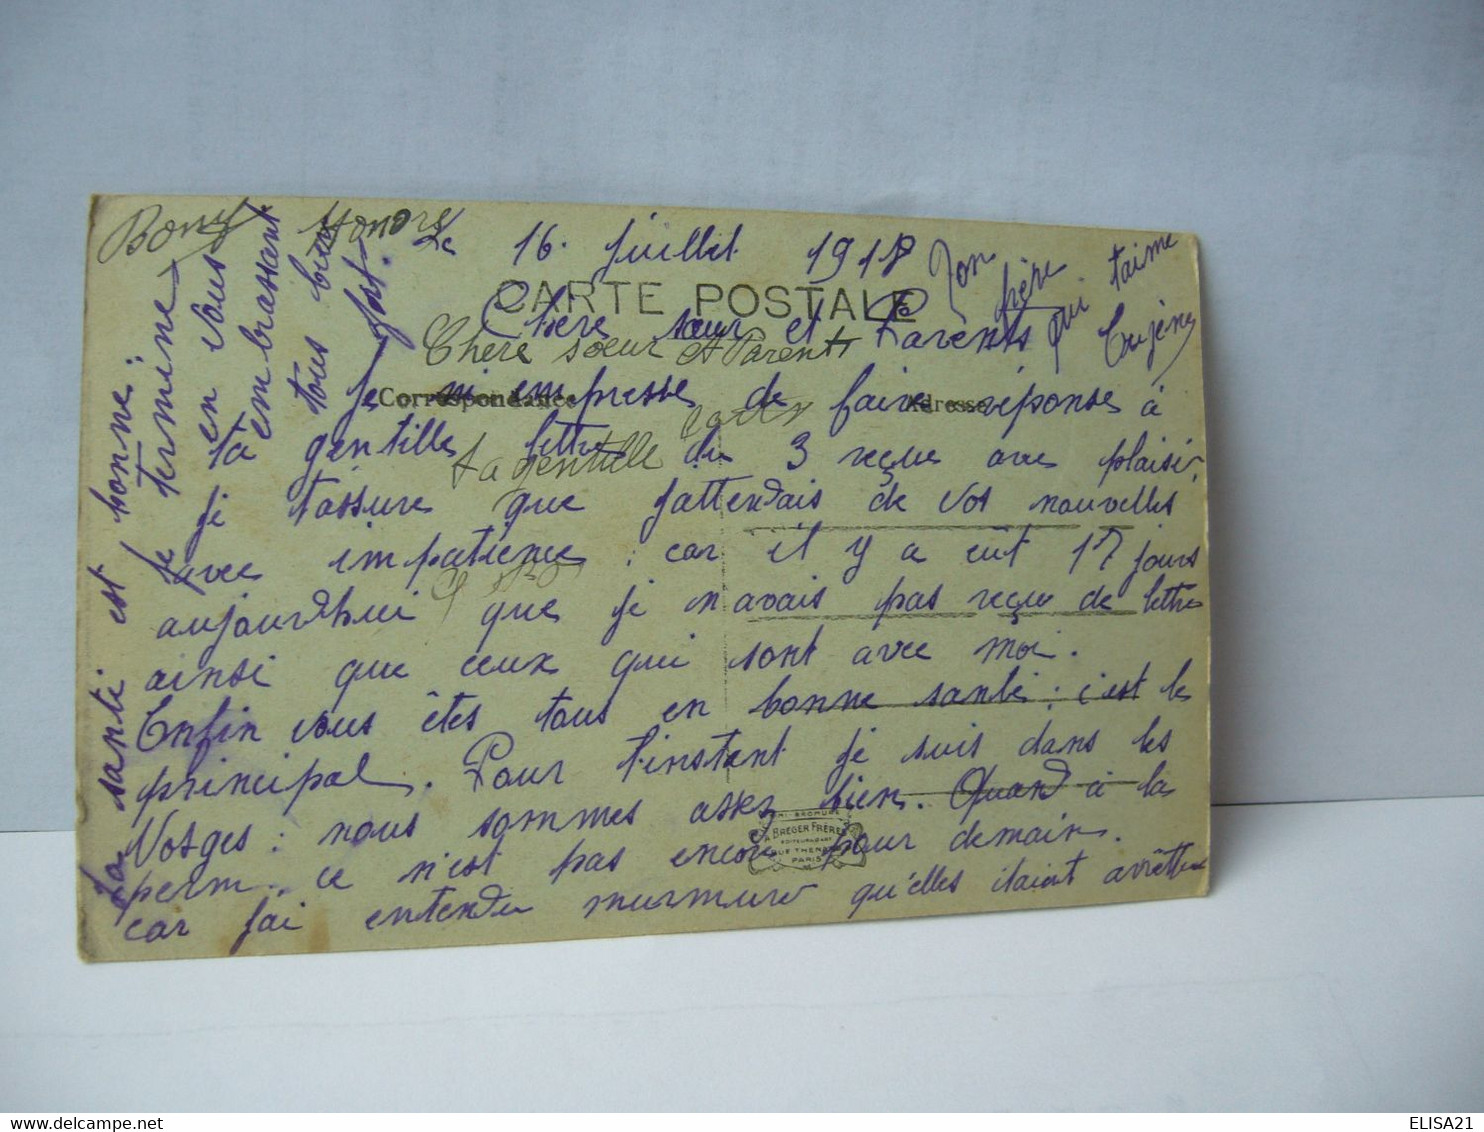 Bony Honoré
Le 16. juillet 1918
CARTE POSTALE
Chère sœur et Parents
Chère soeur et Parents
Correspondance
Adresse
Je m'empresse de faire réponse à
ta gentille lettre du 3 reçue avec plaisir,
ta gentille cartes
je t'assure que j'attendais de vos nouvelles
avec impatience : car il y a eût 17 jours
aujourdhui que je n'avais pas reçue de lettre
ainsi que ceux qui sont avec moi.
Enfin vous êtes tous en bonne santé : c'est le
principal. Pour l'instant je suis dans les
Vosges : nous sommes assez bien. Quand à la
perm : ce n'est pas encore pour demain.
car j'ai entendu murmure qu'elles étaient arrêttée
La santé est bonne :
Je termine
en vous
embrassant
tous bien
fort.
Ton frère qui t'aime
Eugène
A BREGER FRÈRES
RUE THENARD
PARIS
ELISA21